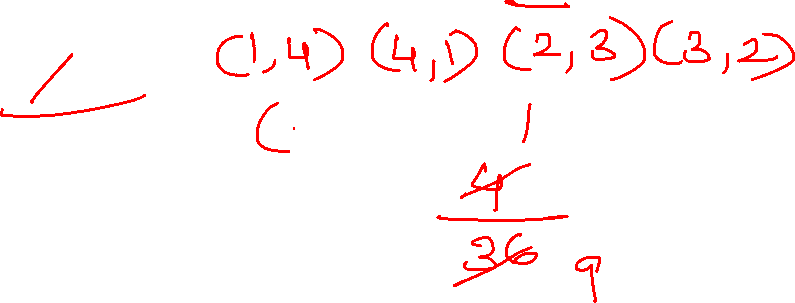 (1,4) (4,1) (2,3) (3,2)
(
1
4
36 9